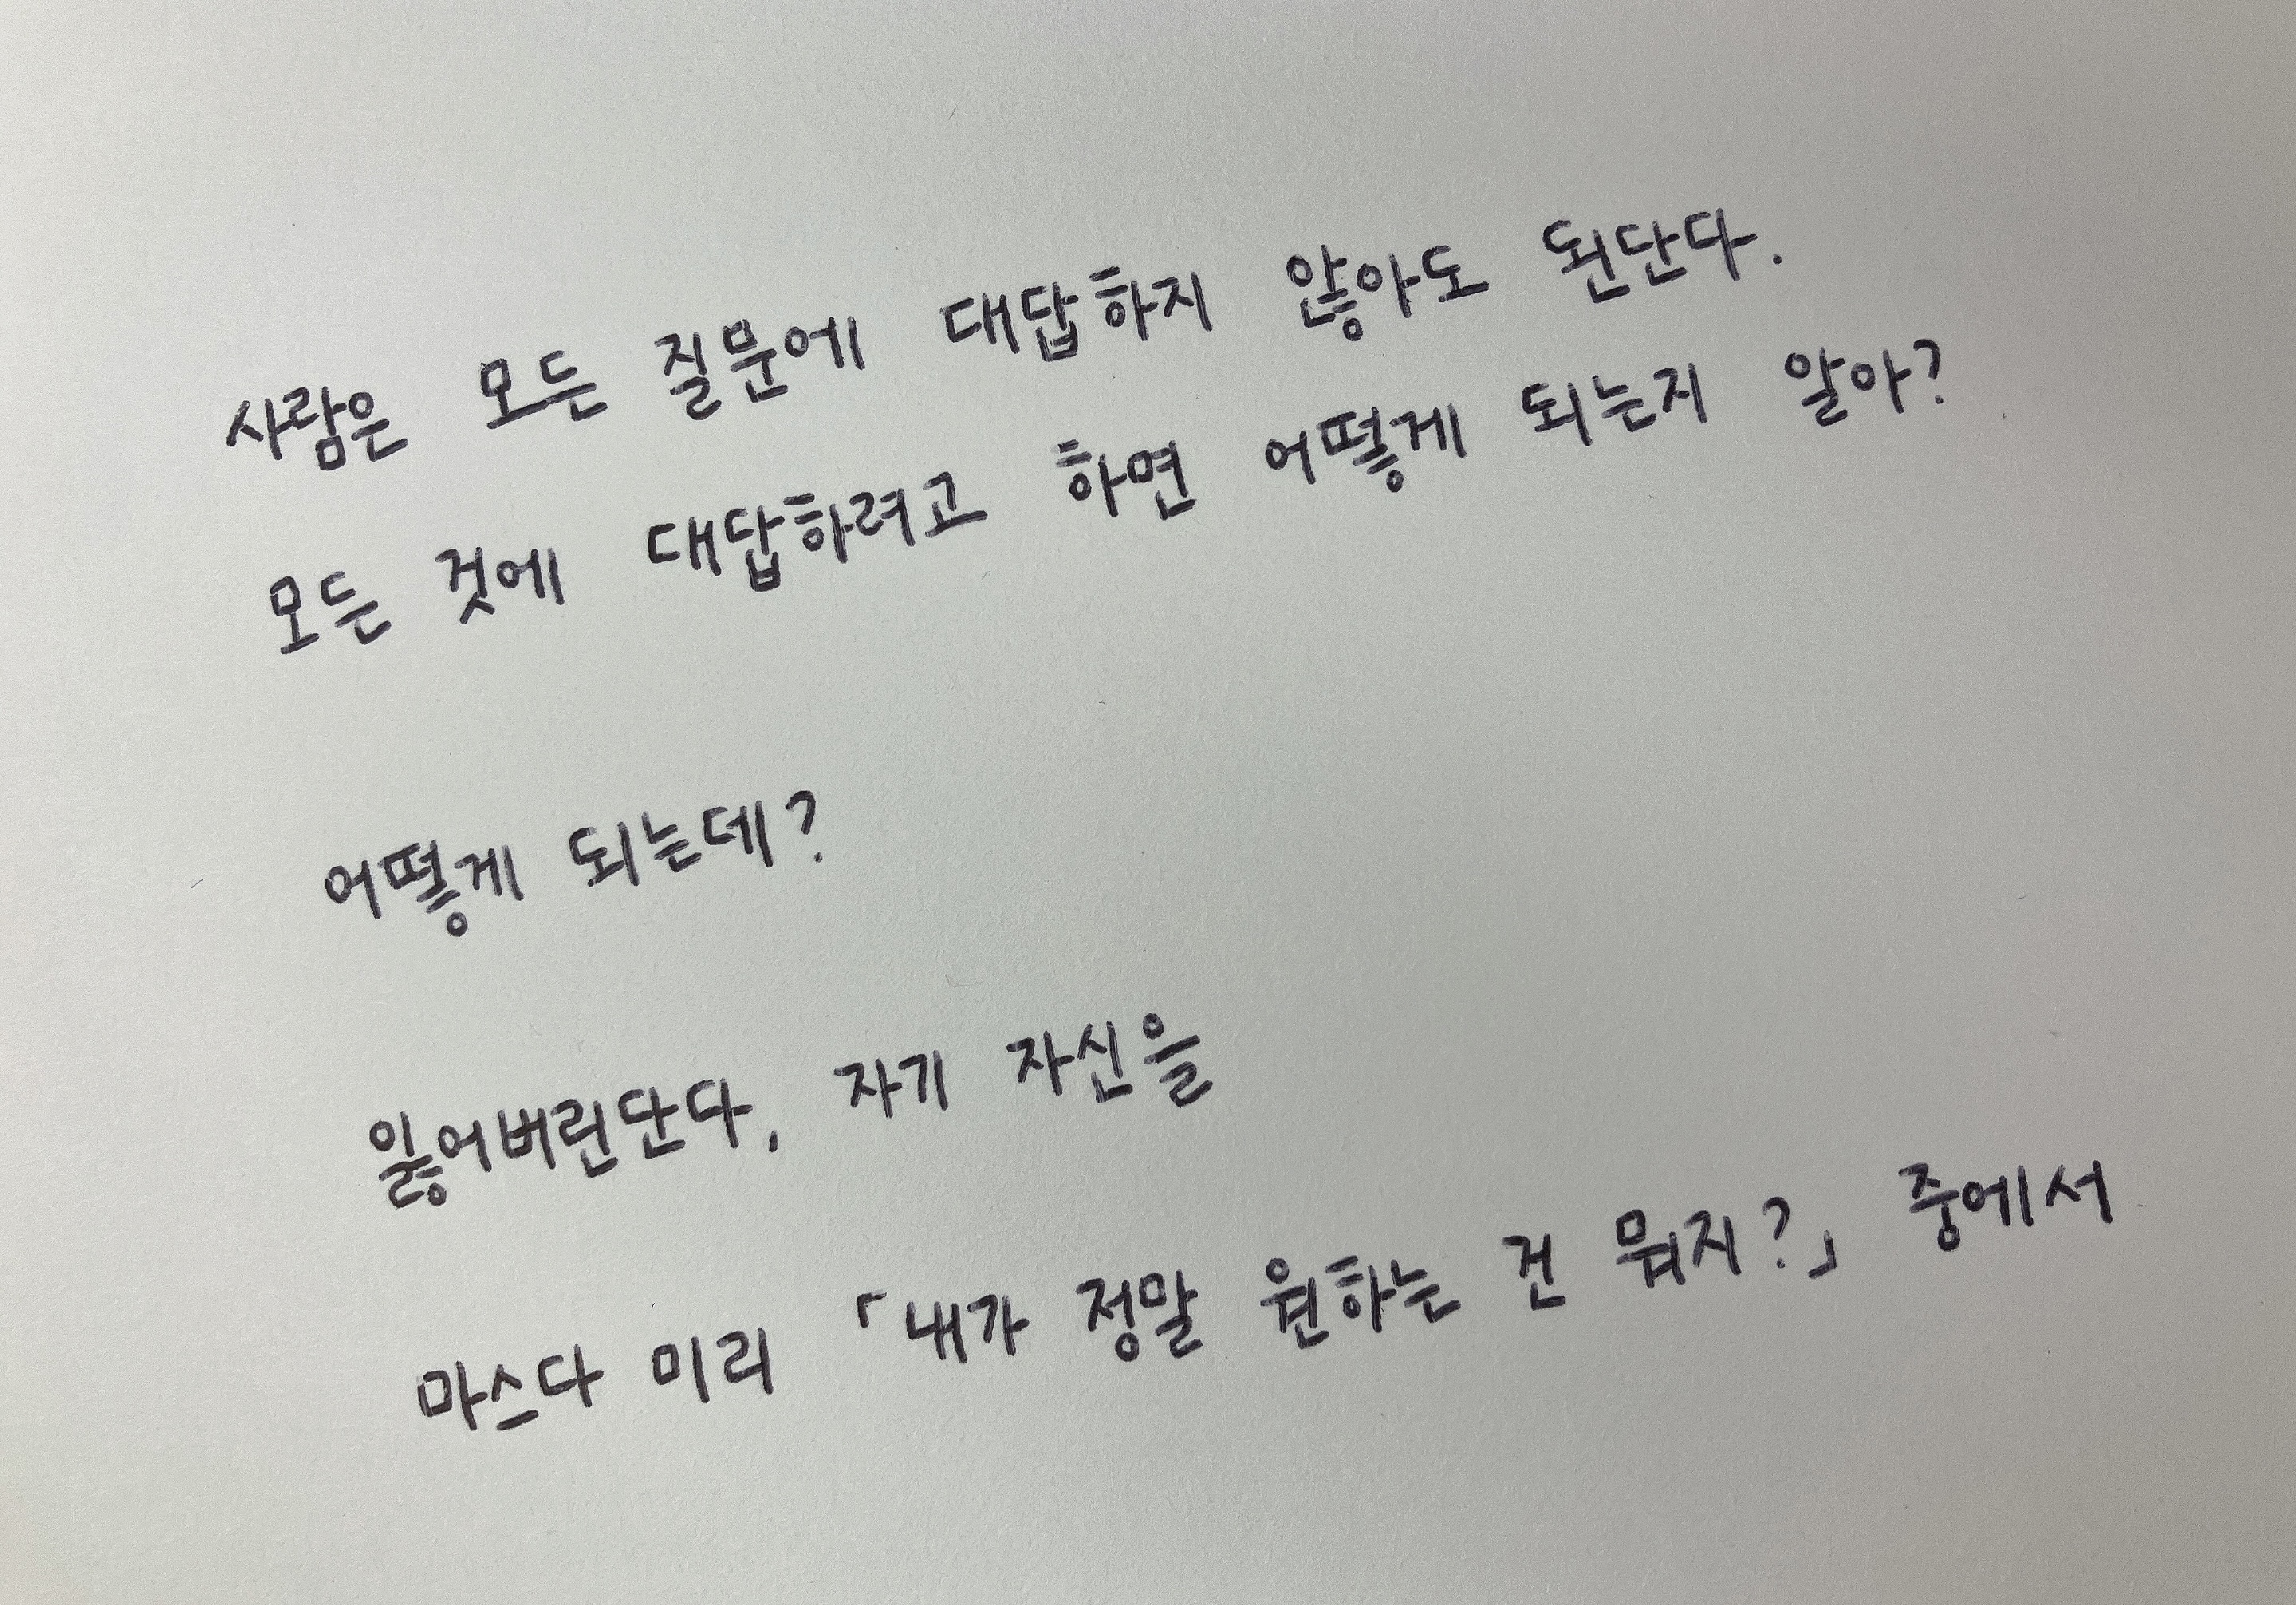 사람은 모든 질문에 대답하지 않아도 된단다.
모든 것에 대답하려고 하면 어떻게 되는지 알아?
어떻게 되는데?
잃어버린단다, 자기 자신을
마스다 미리 「내가 정말 원하는 건 뭐지?」 중에서